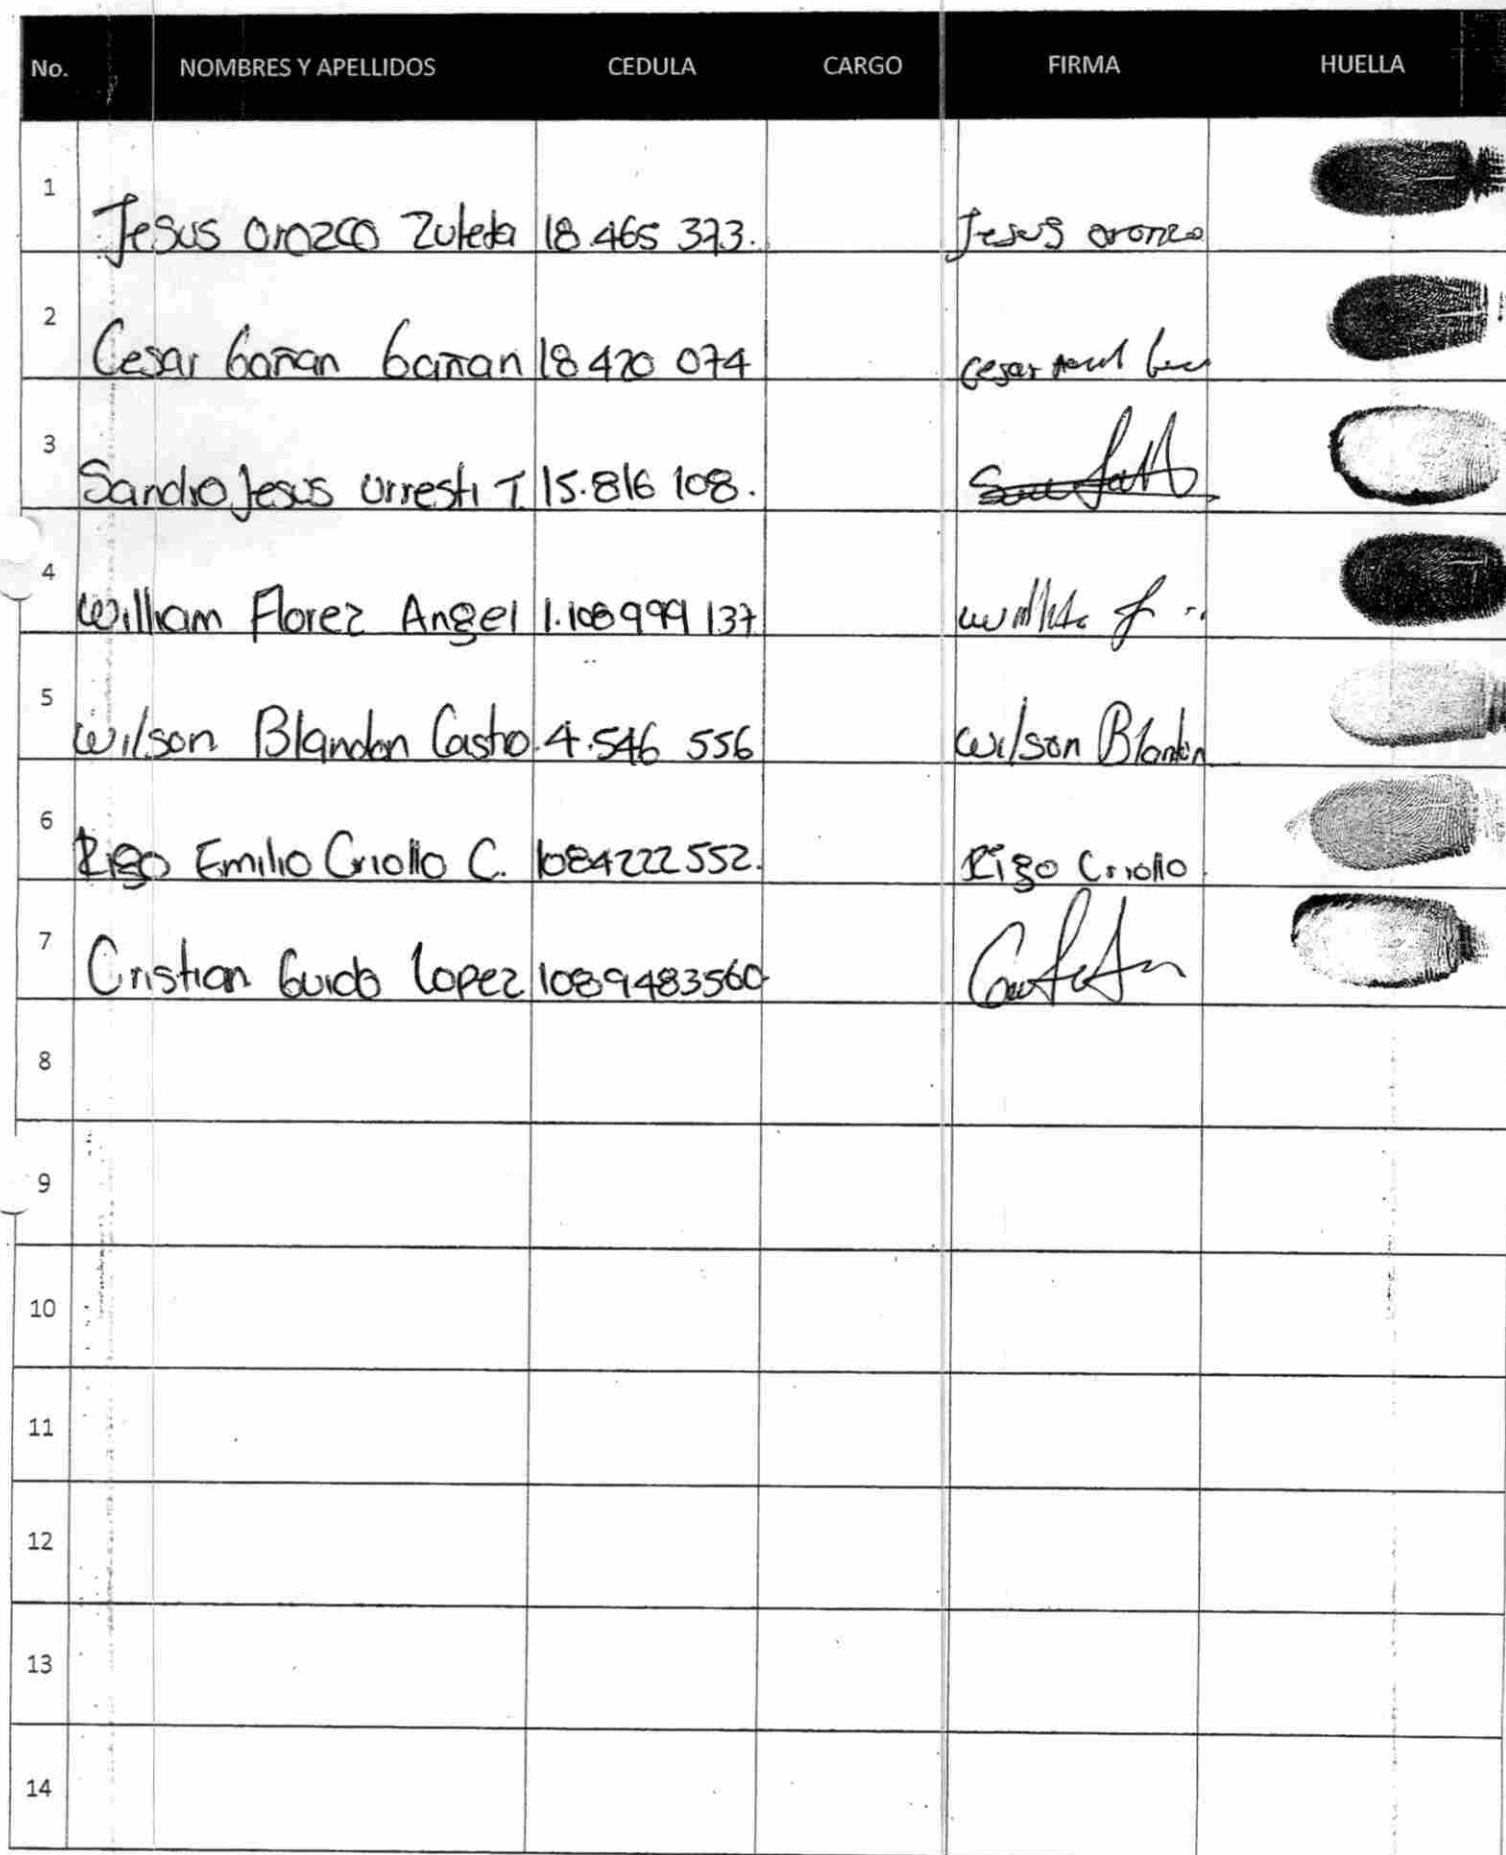 No. NOMBRES Y APELLIDOS CEDULA CARGO FIRMA HUELLA
1 Jesus Orozco Zuleta 18.465 373. Jesus orozco
2 Cesar Gañan Gañan 18 420 074 Cesar
3 Sandro Jesus Urresti T. 15.816 108.
4 William Florez Angel 1.108 999 137
5 Wilson Blandon Castro. 4.546 556 Wilson Blandon
6 Rigo Emilio Criollo C. 1084222552. Rigo Criollo
7 Cristian Guido Lopez 1089483560
8
9
10
11
12
13
14